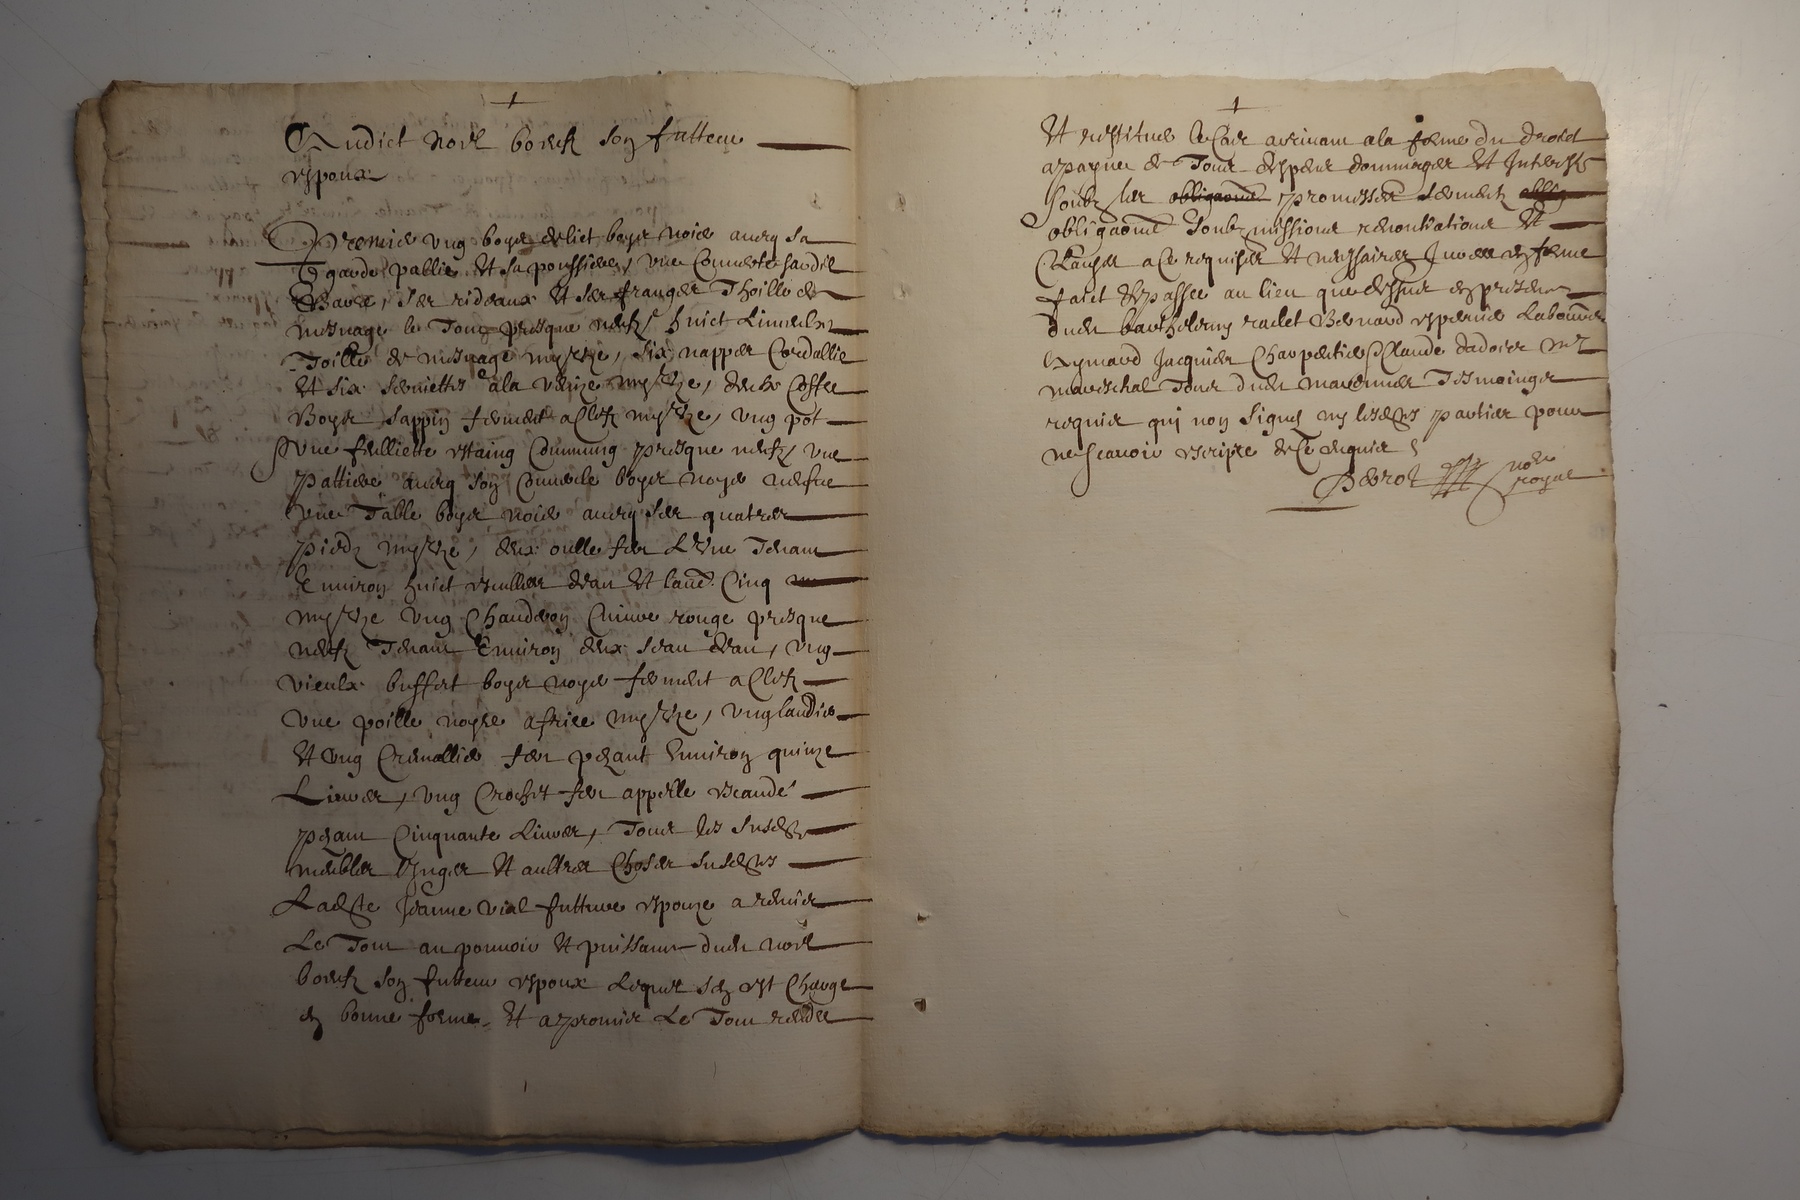 Audict Noel boeuf son futteur
espoux
Premier ung boys de lict boys noier avecq sa
garde pallie et sa poussiere, une couverte
ses rideaux et ses franges thoille de
mesnage le tout presque neuf, huict linceulx
toille de mesnage my uze, six nappes cordallie
et six serviettes a la venize my uze, deux coffre
boys sappin fermant a clefz my uze, ung pot
une feulliette estaing commung presque neufz, une
pattiere avecq son couvercle boys noyer nefve
une table boys noier avecq ses quatres
piedz my uze, deux oulle fer l'une tenant
environ huict escuelles d'eau et l'au͠e cinq
my uze ung chauderon cuivre rouge presque
neufz tenant environ deux seau d'eau, ung
vieulx buffect boys noyer fermant a clefz
une poille noyre a frire my uze, ung landier
et ung cremallier fer pezant environ quinze
livres, ung crochet fer appellé
pezant cinquante livres, tous les susdicts
meubles linges et aultres choses susdictes
Ladicte Jeanne Vial futture espouze a remis
le tout au pouvoir et puissance dudict Noel
boeufz son futteur espoux lequel s'en est charge
en bonne forme, et a promis le tout rendre
et restitues le cas advenant a la forme du droict
a payne de tous despens dommages et interestz
soubz les obligaõns promesses serment
obligaõns soubzmissions renontiations et
clauses a ce requises et necessaires en forme
faict et passee au lieu que dessus en presence
dudict barthelemy raclet Bernard esperier laboureur
Aymard Jacquier charpentier Claude dadoier mre
mareschal tous dudict tesmoings
requis qui n'on signes ny lesdictes parties pour
ne scavoir escripre de ce requis
Berrot nore
royal